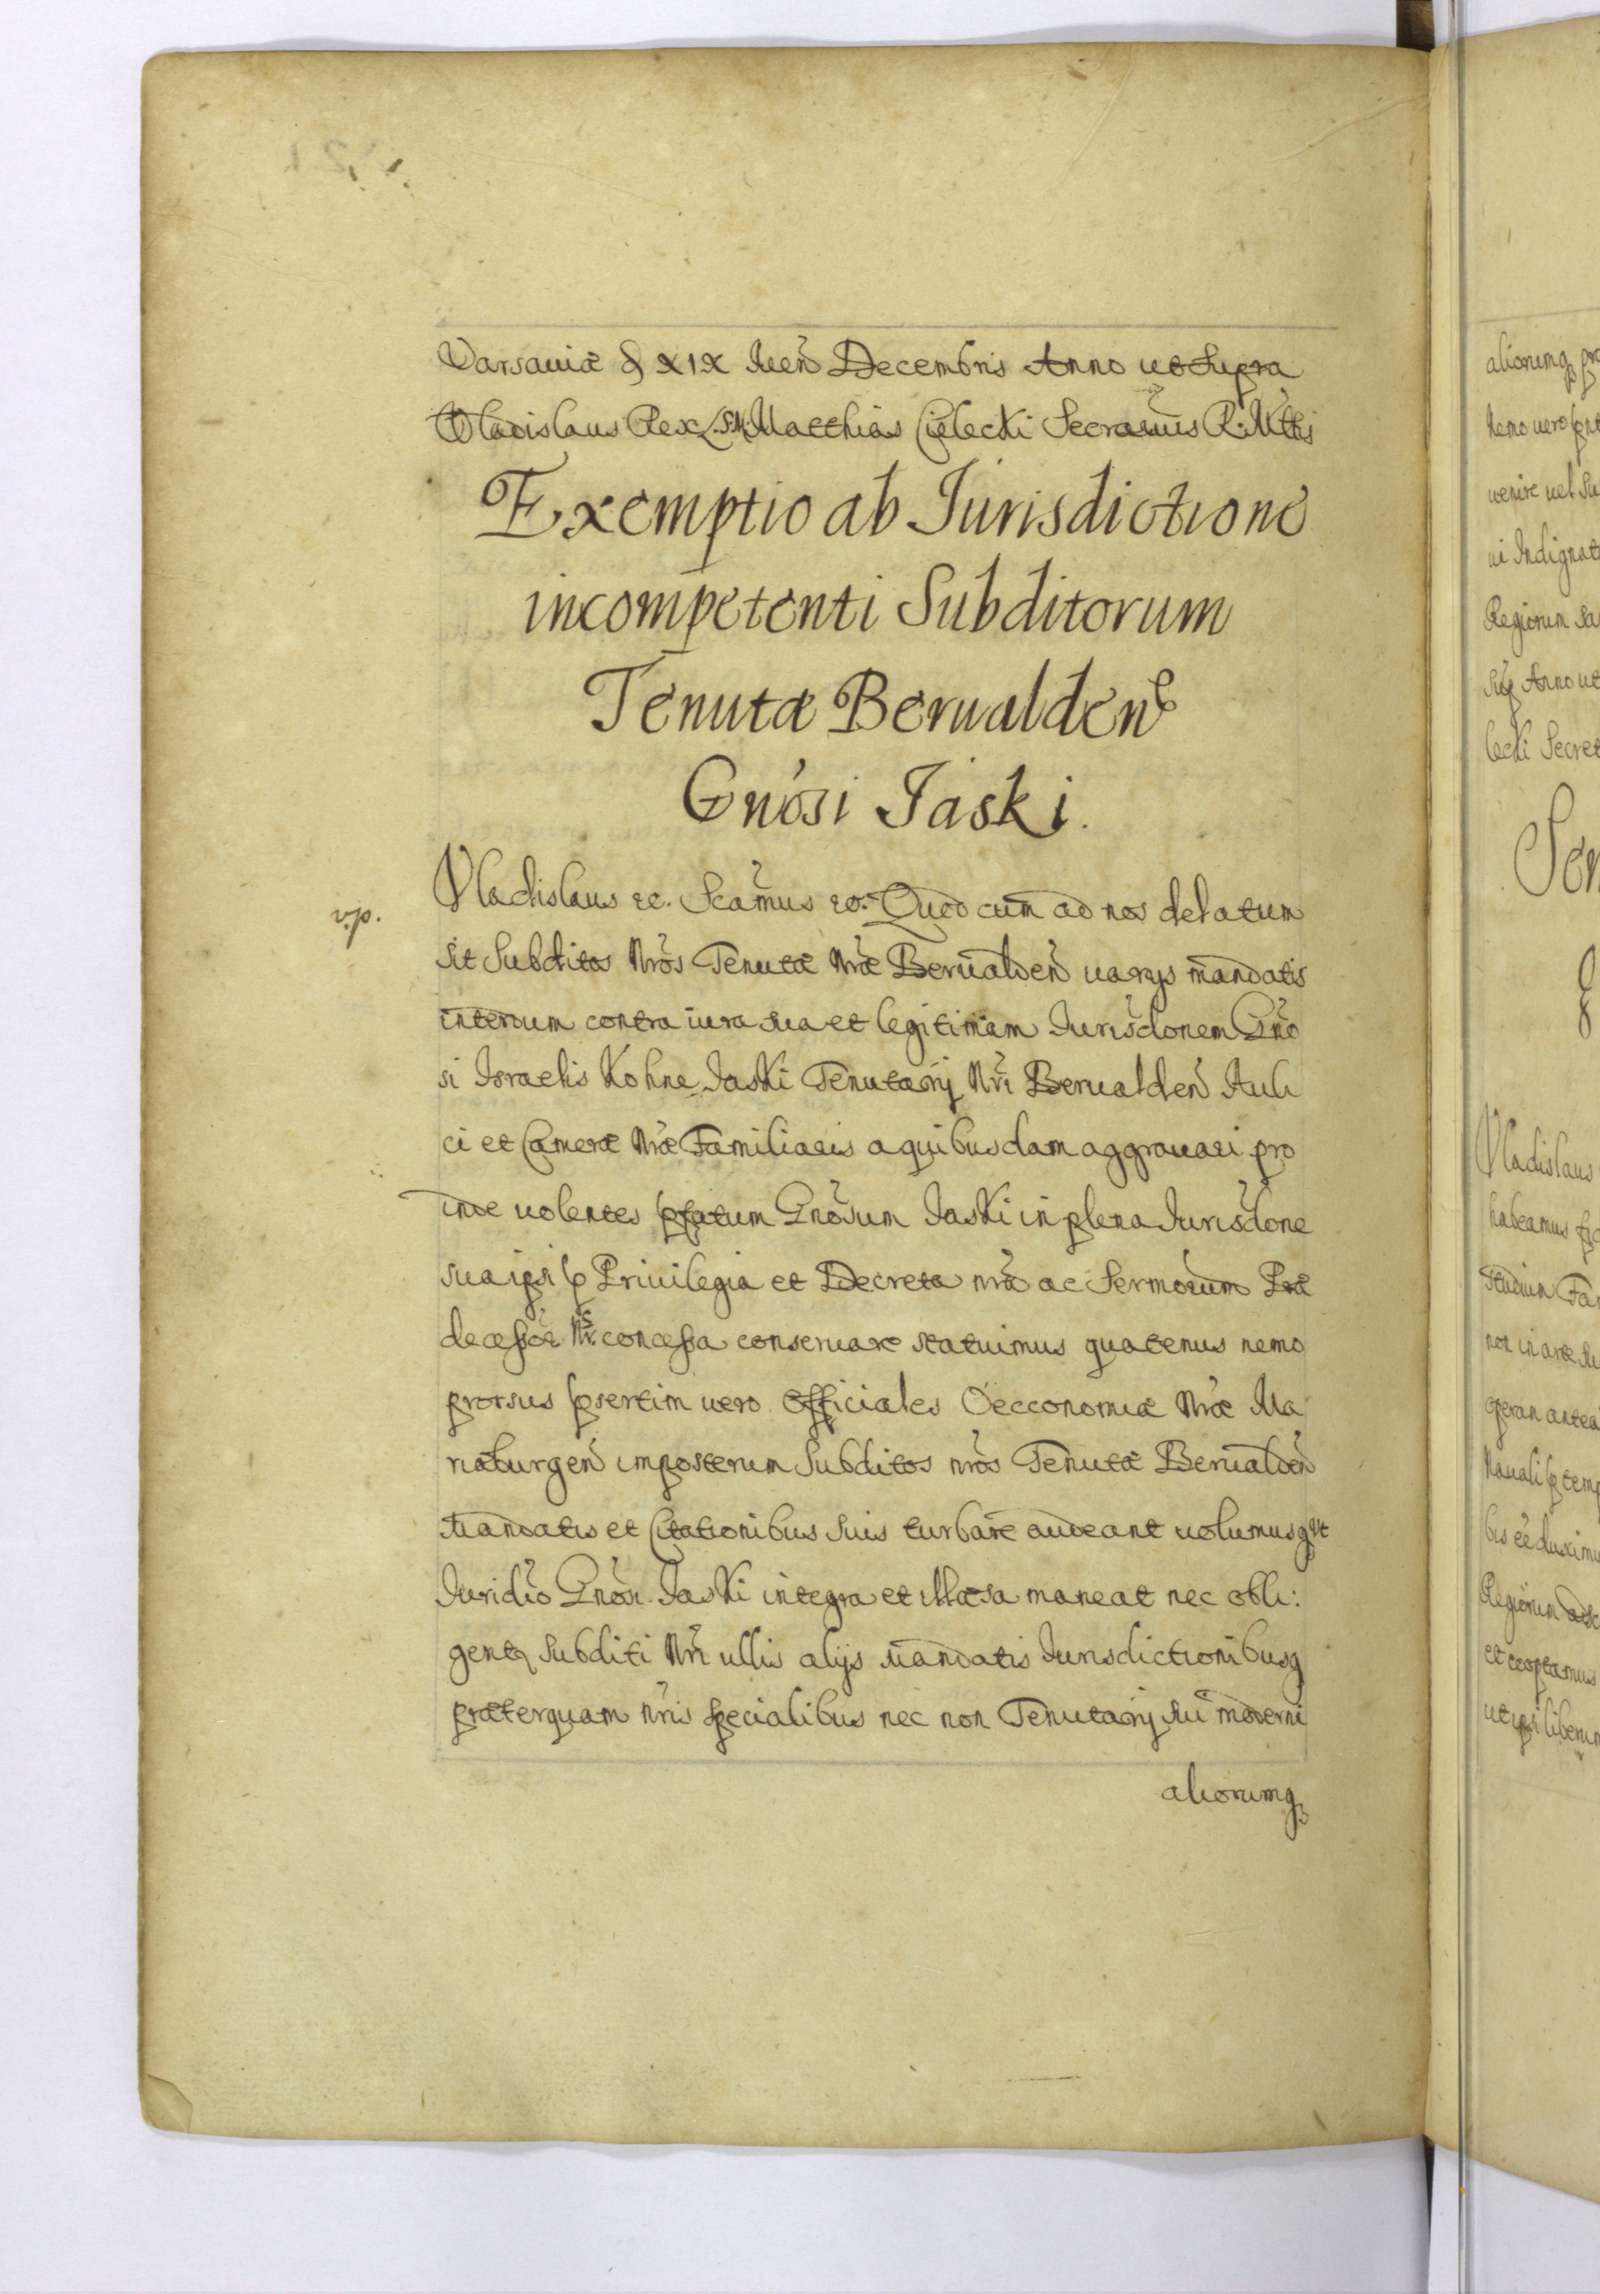 Varsauiæ d XIX Men Decembris Anno ut Supra
Vladislaus Rex L.S.M. Matthias Cielecki Secrarius R. Mttis
Exemptio ab Jurisdictione
incompetenti Subditorum
Tenutæ Berualden
Gnosi Jaski.
v.p.
Vladislaus &c. Scamus &c. Quod cum ad nos delatum
sit Subditos Nros Tenutæ Nræ Berualden uarys mandatis
interdum contra iura sua et legitimam Jurisdonem Gno
si Israelis Kohne Jaski Tenutarij Nri Berualden Auli
ci et Cameræ Nræ Familiaris a quibusdam aggrauari pro
inde uolentes pfatum Gnosum Jaski in plena Jurisdone
sua ipsi p Priuilegia et Decreta nra ac Sermorum Præ
decessor Nr. concessa conseruare statuimus quatenus nemo
prorsus psertim uero Officiales Oecconomiæ Nræ Ma
riæburgen imposterum Subditos nros Tenutæ Berualden
Mandatis et Citationibus suis turbare audeant uolumusq Vt
Juridio Gnosi Jaski integra et illæsa maneat nec obli:
gentq Subditi Nri ullis alijs mandatis Jurisdictionibusq
præterquam nris specialibus nec non Tenutarij sui moderni
aliorumq
aliorumq pro
Nemo uero
uenire uel Su
ui Indignat
Regiorum
Anno ut
lecki Secret
Vladislaus
habeamus
Studium Fa
non in arte su
operan antea
Nauali p temp
bis ee duximu
Regiorum
et cooptamus
ut ipsi liberum